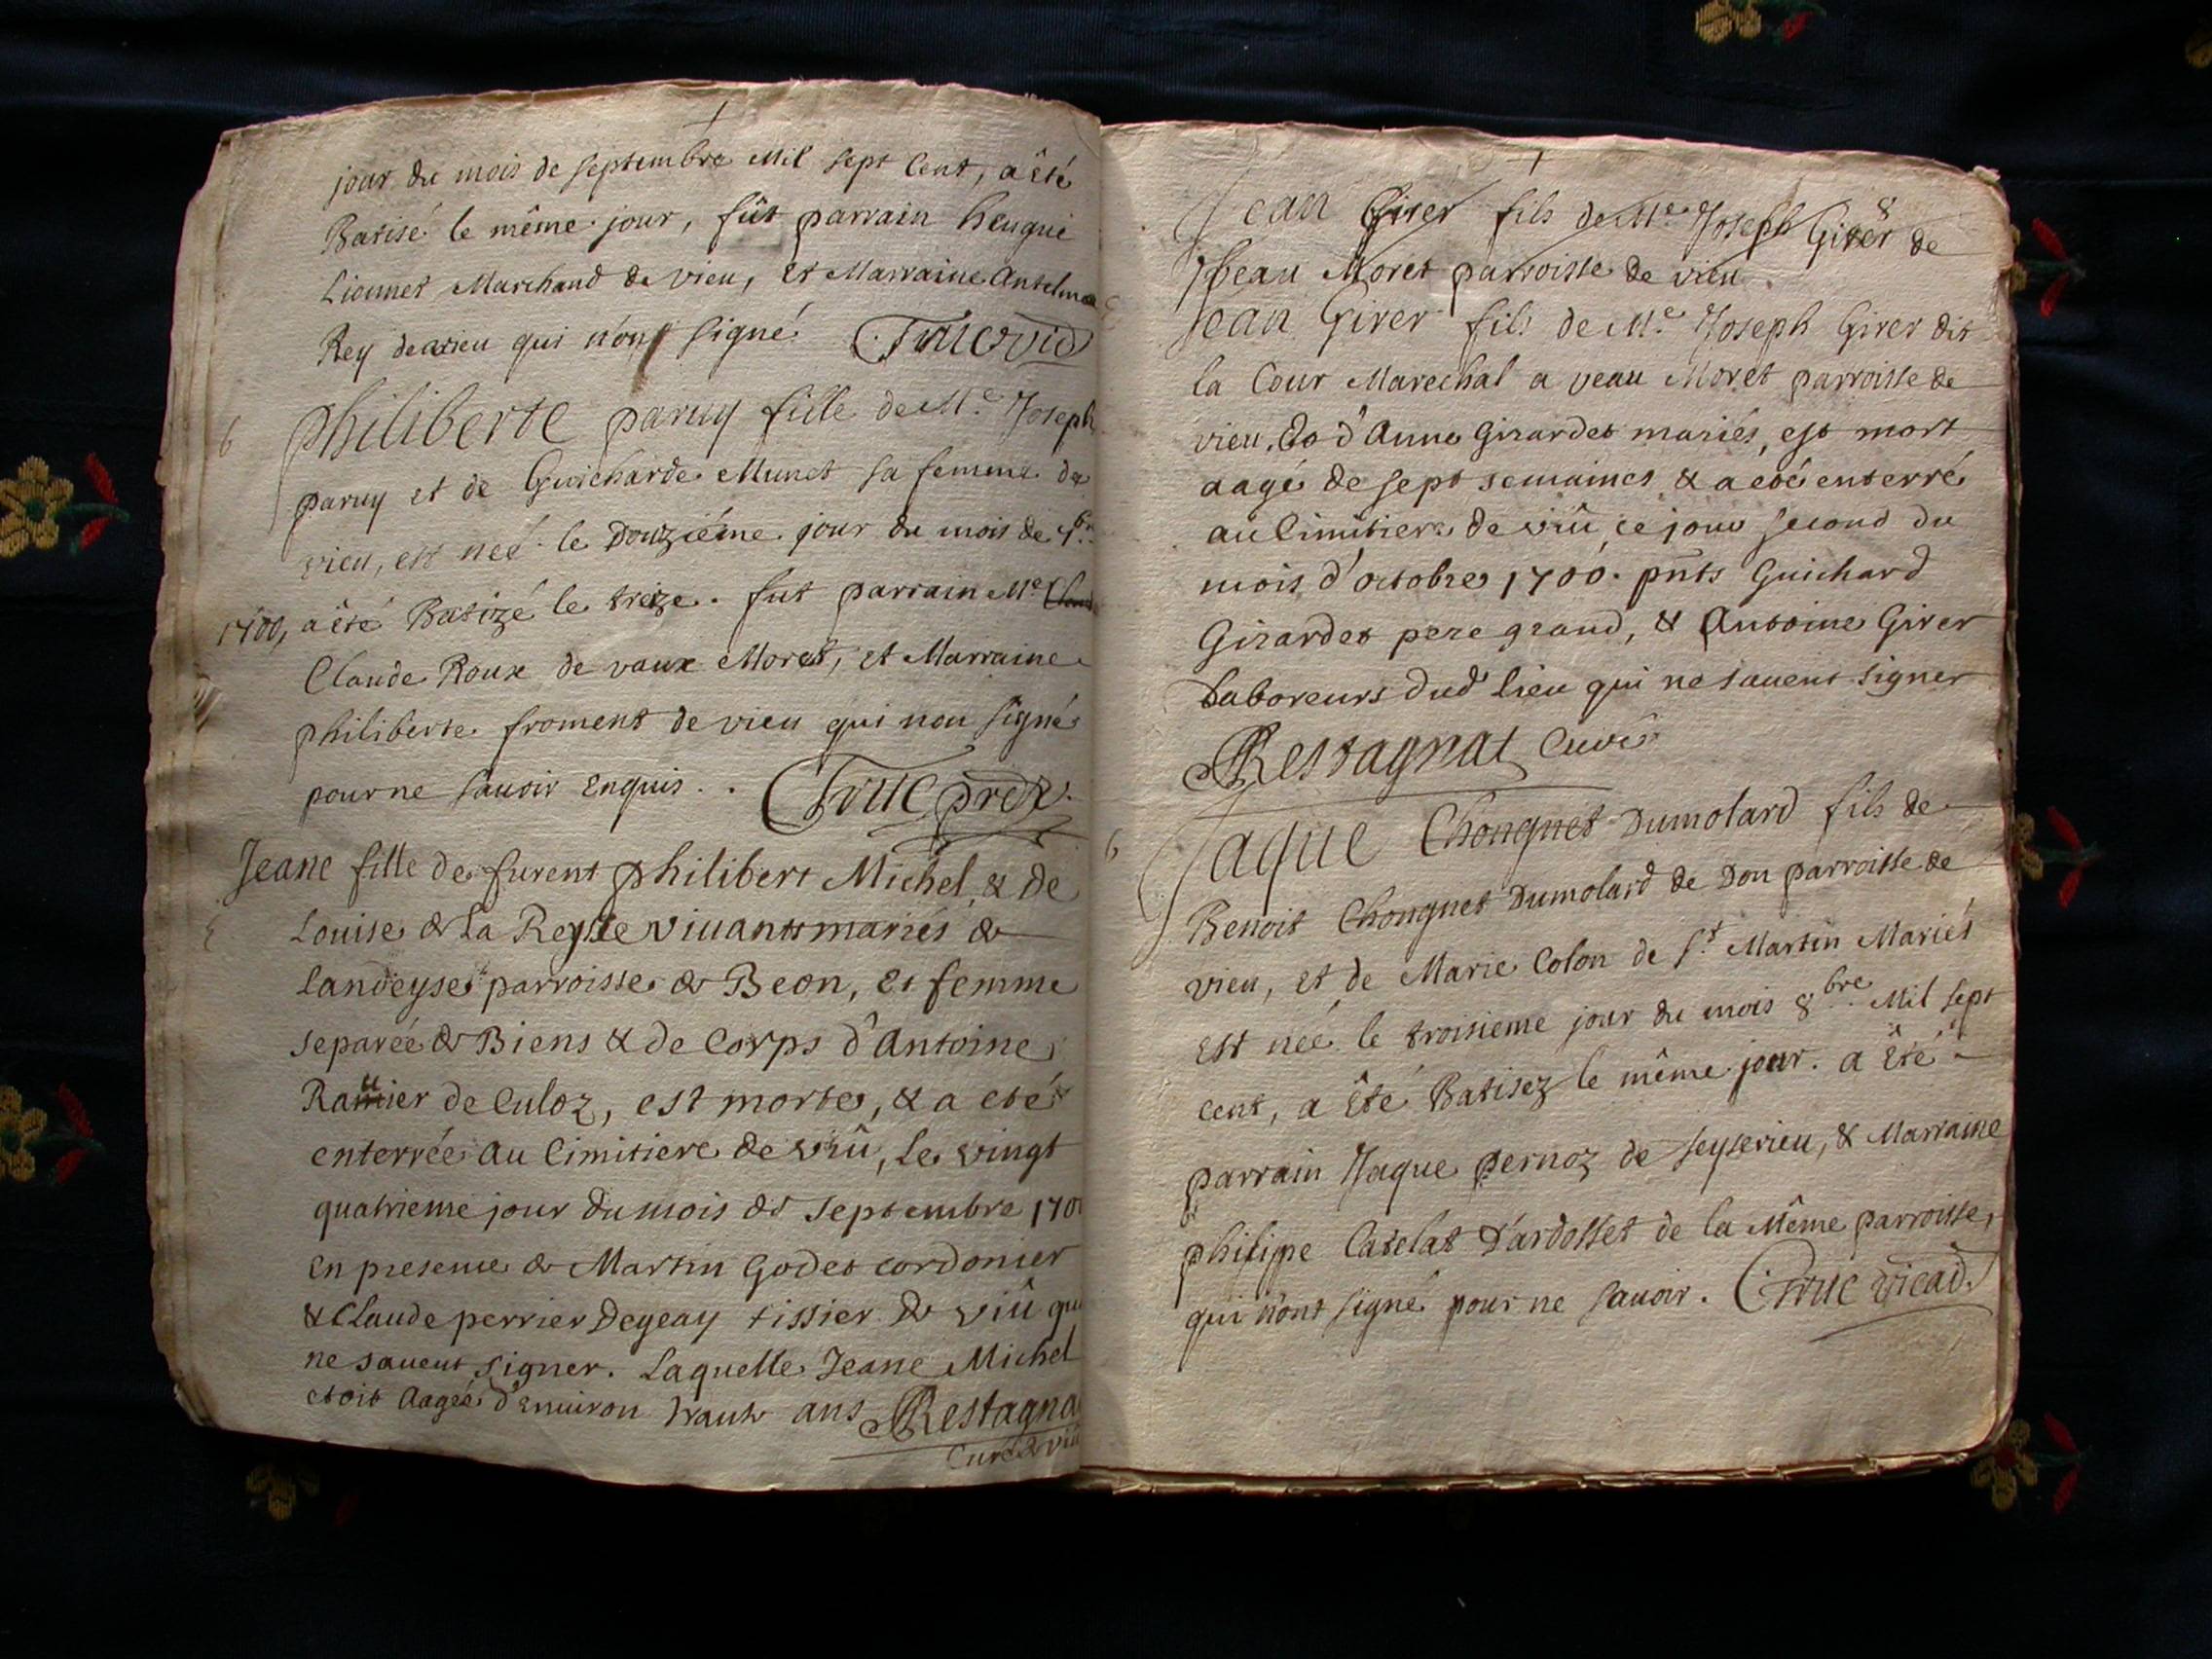 jour du mois de septembre Mil sept Cent, a êté
Batisé le même jour, fût parrain heugne
Lionnet Marchand de vieu, et Marraine Antelme
Rey de vieu qui n'ont signé. Truc vic
6 philiberte paruy fille de Me Joseph
paruy et de Guicharde Munet sa femme de
vieu, est neé le Douziéme jour du mois de 7bre
1700, a êté Batizé le treize. fut parrain Me
Claude Roux de vaux Moret, et Marraine
philiberte froment de vieu qui non signé
pour ne sauoir Enquis .. Truc prêt.
Jeane fille de furent philibert Michel, & de
Louise de La viuants mariés de
landeyse parroisse de Beon, et femme
separée de Biens & de Corps d'Antoine
de Culoz, est morte, & a eté
enterrée au Cimitiere de viû, Le vingt
quatrieme jour du mois de Septembre 1700
en presence de Martin Godet cordonier
& Claude perrier Degeay tissier de viû qui
ne sauent signer. Laquelle Jeane Michel
etoit Aageé d'enuiron trante ans Restagnat
Curé de viû
Jean Girer fils de Me Joseph Girer de
veau Moret parroisse de vieu.
Jean Girer fils de Me Joseph Girer dit
la Cour Marechal a veau Moret parroisse de
vieu, & d'Anne Girardet mariés, est mort
aagé de sept semaines & a eté enterré
au Cimitiere de viû ce jour second du
mois d'octobre 1700. pnts Guichard
Girardet pere grand, & Antoine Girer
Laboreurs dud lieu qui ne sauent signer
Restagnat Curé
6 Jaque Chongnet Dumolard fils de
Benoit Chongnet Dumolard de Don parroisse de
vieu, et de Marie Colon de St Martin Mariés
Est neé le troisieme jour du mois 8bre Mil sept
cent, a êté Batisez le même jour. a êté
parrain Jaque pernoz de seyserieu, & Marraine
philippe Catelat d'ardosset de la Même parroisse,
qui n'ont signé pour ne sauoir. Truc vicaid.